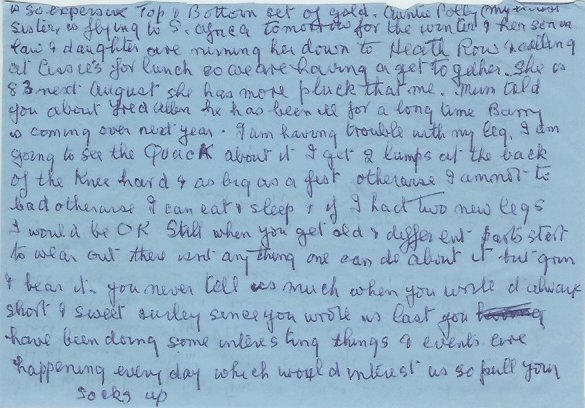 is so expensive Top & Bottom set of gold. Auntie Polly my mum's
sister is flying to S. Africa tomorrow for the winter & her son in
law & daughter are running her down to Heath Row & calling
at Cissie's for lunch so we are having a get to gether. She is
83 next August she has more pluck that me. Mum told
you about Fred Allen he has been ill for a long time Barry
is coming over next year. I am having trouble with my leg. I am
going to see the Quack about it I get 2 lumps at the back
of the Knee hard & as big as a fist otherwise I am not to
bad otherwise I can eat & sleep & if I had two new legs
I would be OK Still when you get old & different parts start
to wear out there isnt any thing one can do about it but grin
& bear it. you never tell us much when you write it always
short & sweet surley since you wrote us last you
have been doing some interesting things & events are
happening every day which would interest us so pull your
socks up